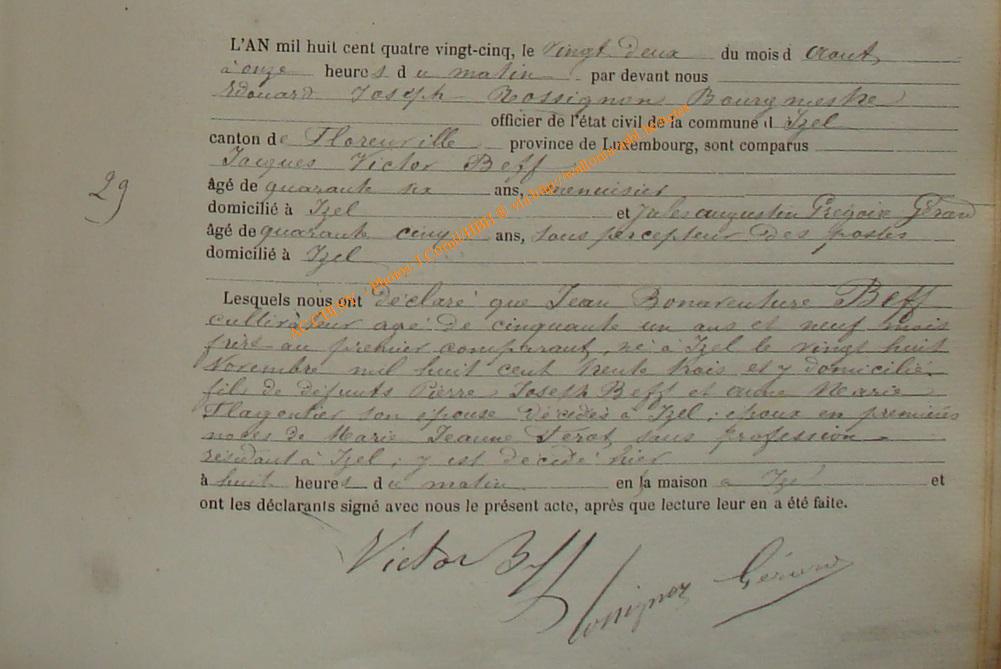 L'AN mil huit cent quatre vingt-cinq, le vingt deux du mois d août
à onze heures du matin par devant nous
Edouard Joseph Rossignon Bourgmestre
officier de l'état civil de la commune d Izel
canton de Florenville province de Luxembourg, sont comparus
Jacques Victor Beff
29
âgé de quarante six ans, menuisier
domicilié à Izel et Jules augustin Grégoire Gérard
âgé de quarante cinq ans, sous percepteur des postes
domicilié à Izel
Lesquels nous ont déclaré que Jean Bonaventure Beff
cultivateur agé de cinquante un ans et neuf mois
frère au premier comparant, né à Izel le vingt huit
Novembre mil huit cent trente trois et y domicilié
fils de défunts Pierre Joseph Beff et anne Marie
son épouse décédés à Izel ; époux en premières
noces de Marie Jeanne sans profession
résidant à Izel ; y est décédé hier
à huit heures du matin en la maison à Izel et
ont les déclarants signé avec nous le présent acte, après que lecture leur en a été faite.
Victor Beff
Rossignon Gérard